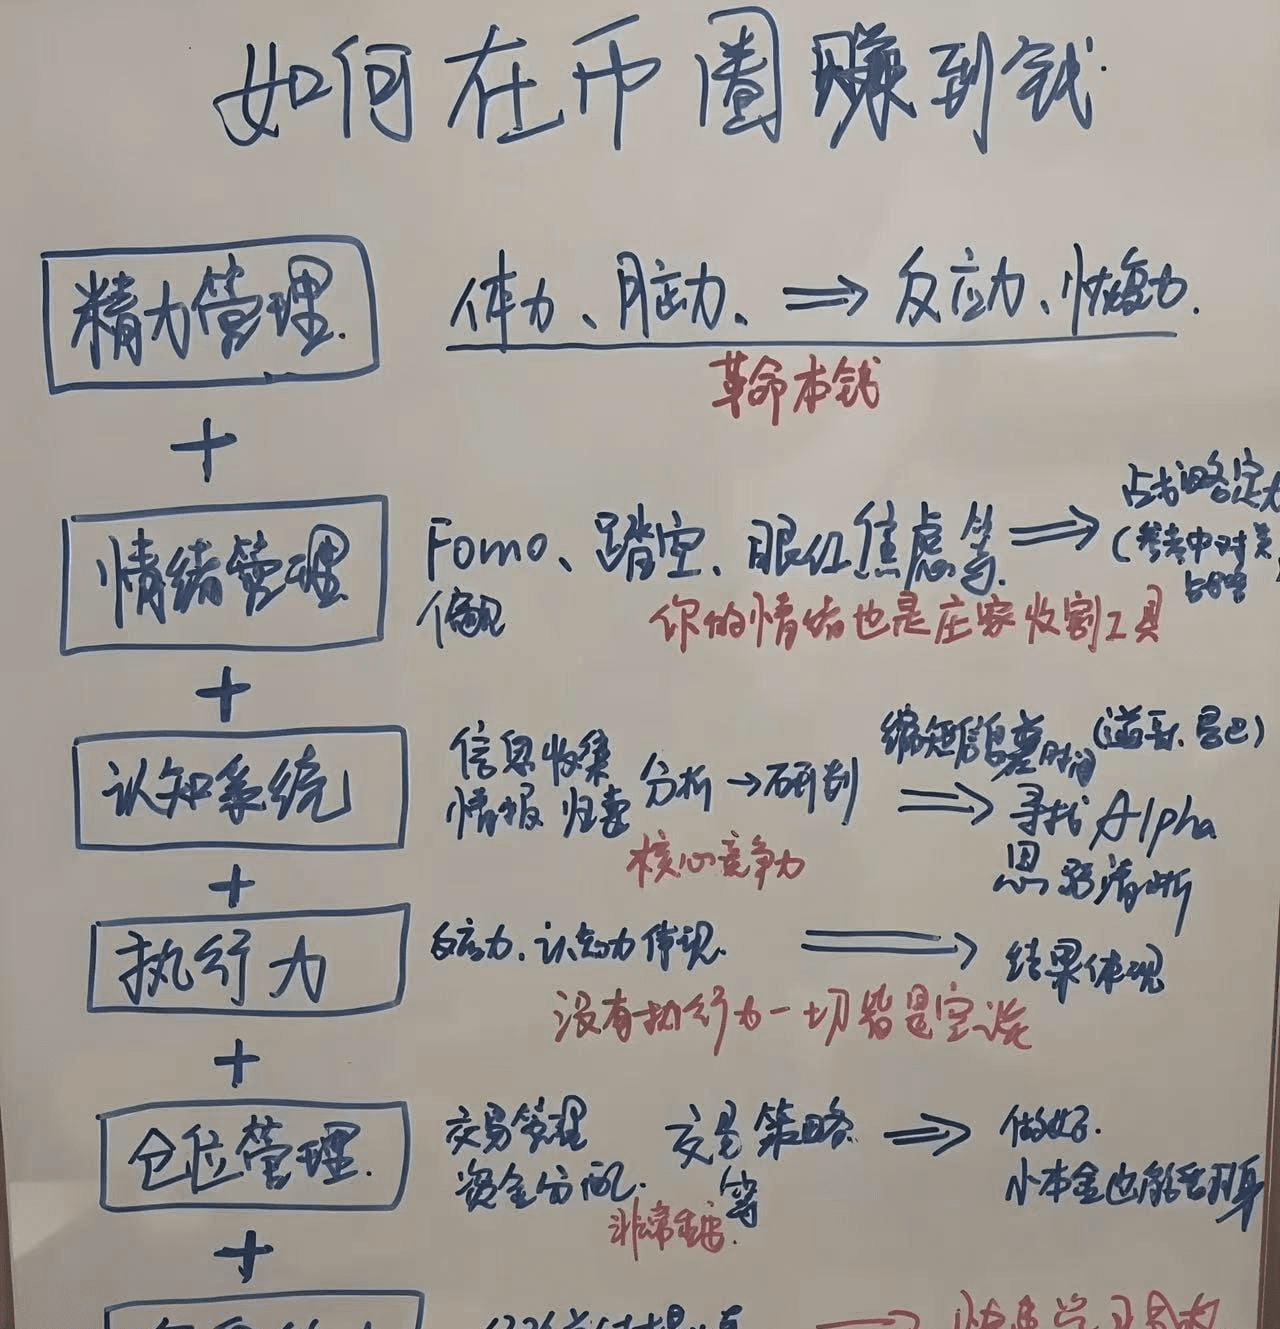 如何在币圈赚到钱
精力管理
体力、脑力、⇒反应力、恢复力.
革命本钱
+
情绪管理
Fomo、踏空、眼红焦虑等⇒
偏见
你的情绪也是庄家收割工具
+
认知系统
信息收集
情报 归类
分析→研判
缩短信息差时间
⇒寻找Alpha
思路清晰
核心竞争力
+
执行力
反应力、认知力体现. ⇒结果体现
没有执行力一切皆是空谈
+
仓位管理.
交易管理
资金分配.
交易策略
等
⇒做好.
小本金也能活到
非常重要.
+